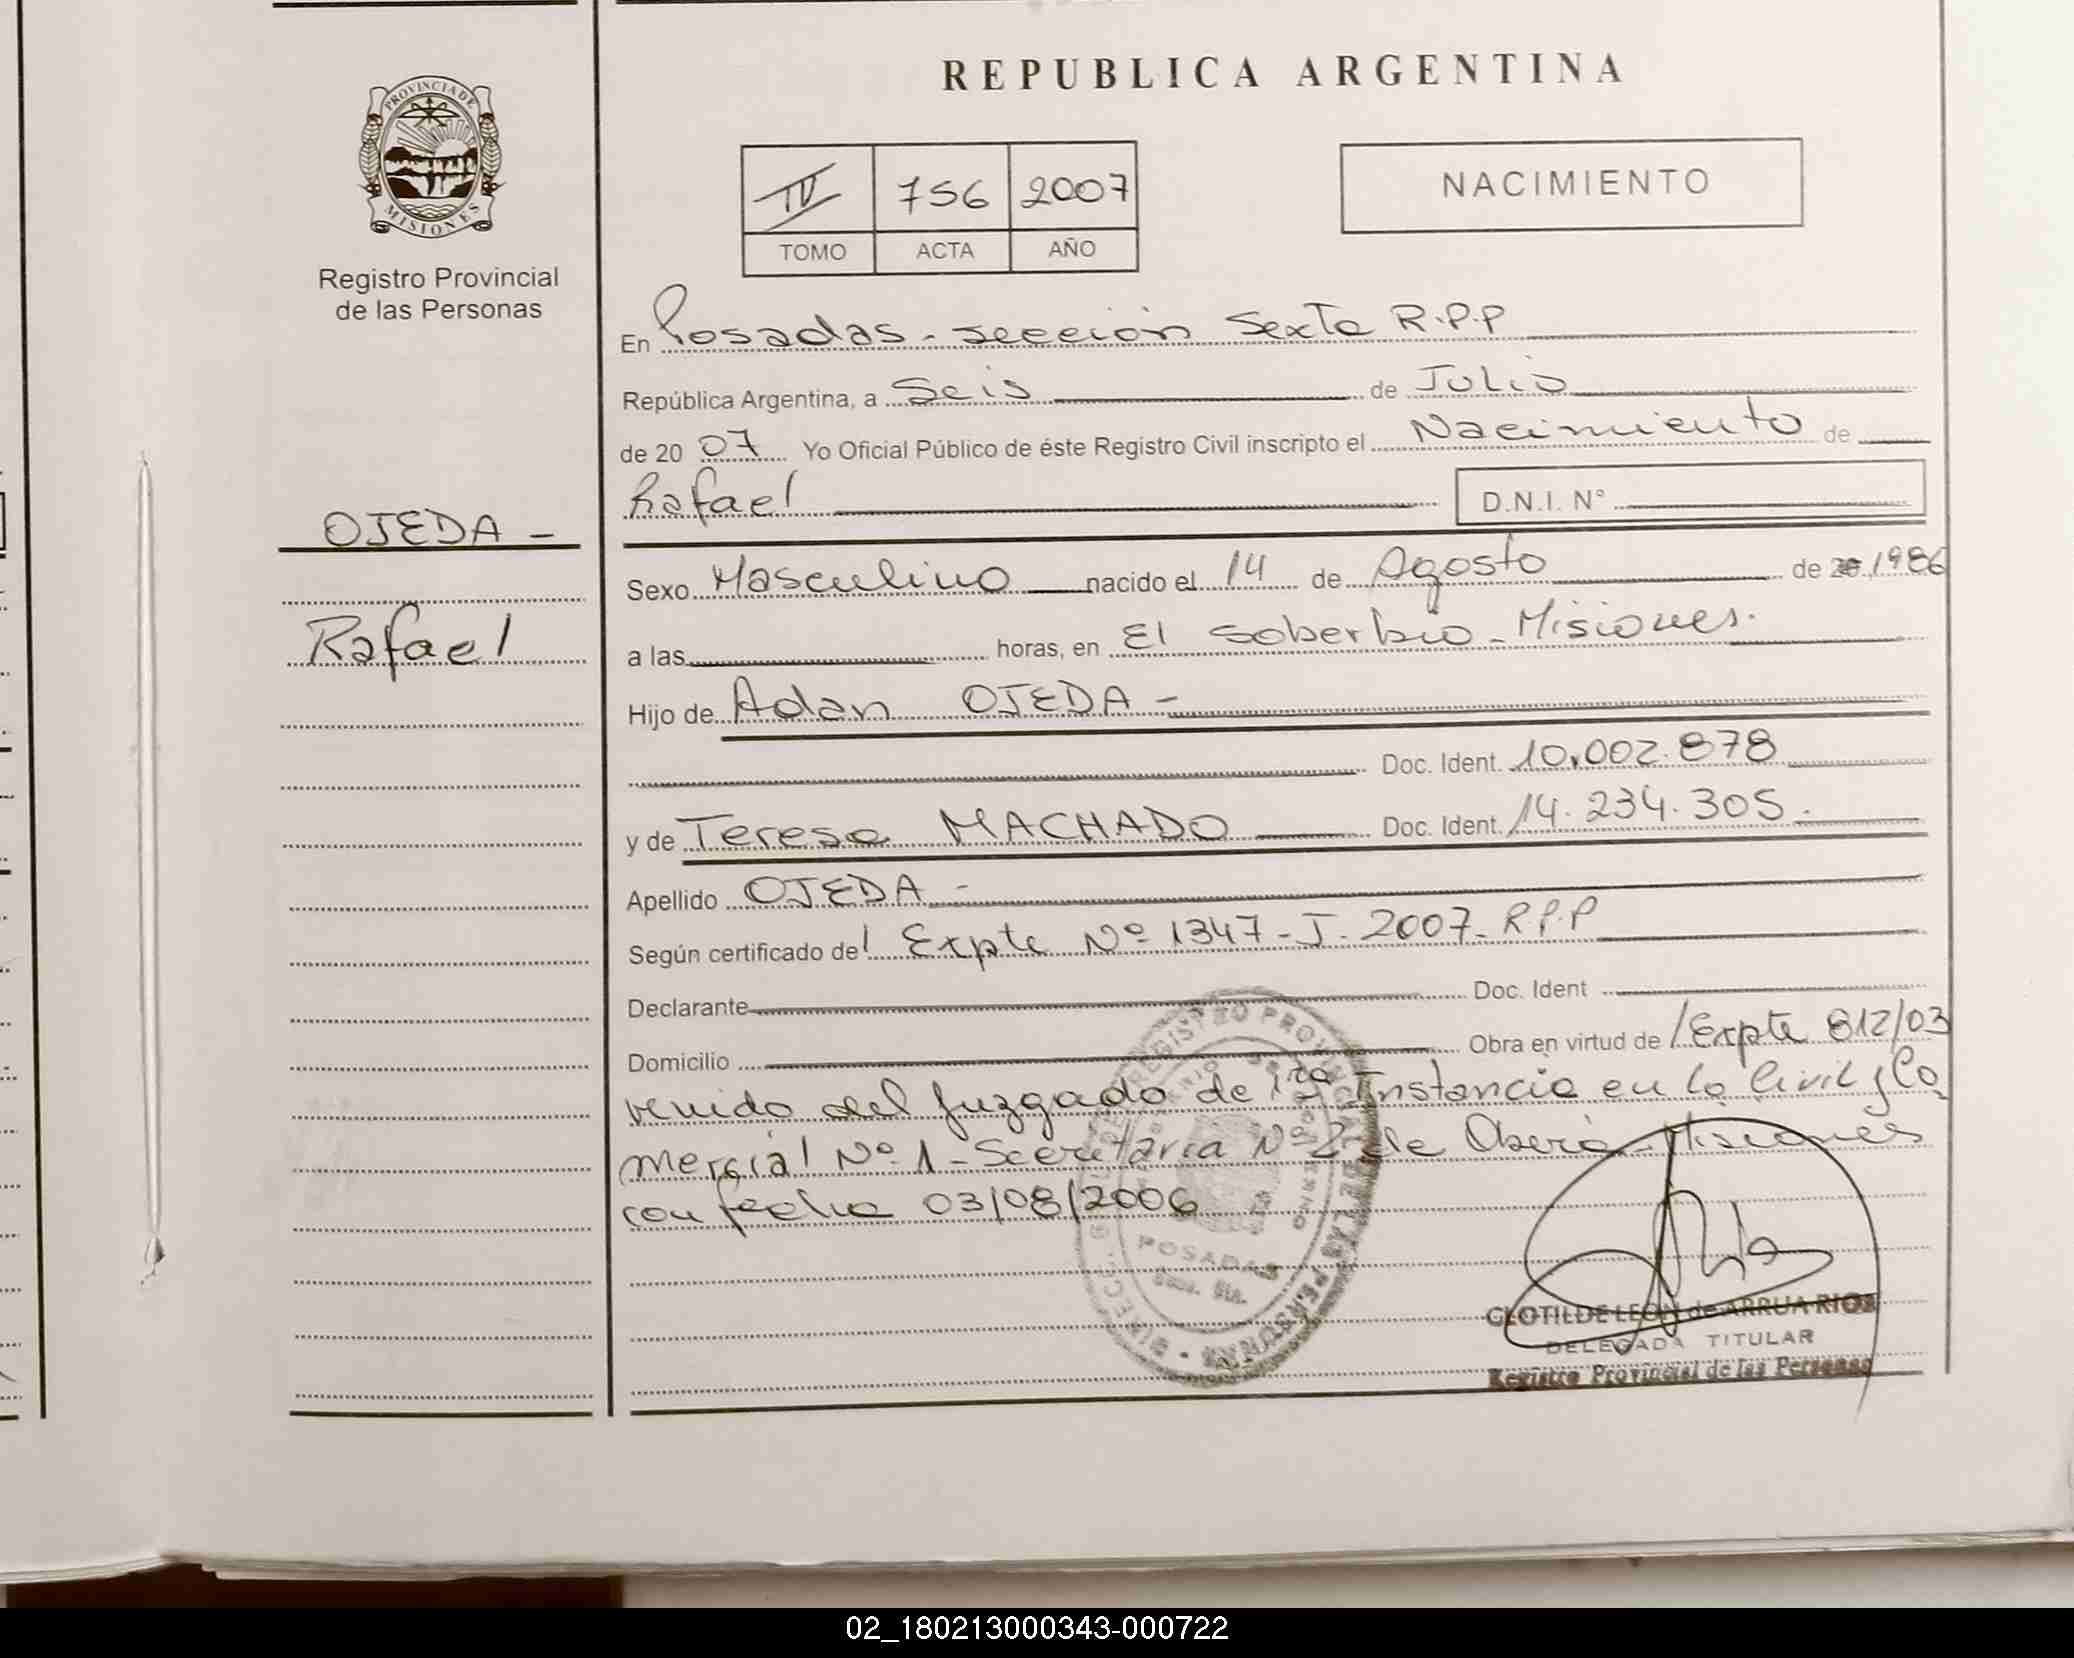 REPUBLICA ARGENTINA
PROVINCIA DE
MISIONES
Registro Provincial
de las Personas
IV 756 2007
TOMO ACTA AÑO
NACIMIENTO
OJEDA -
Rafael
En Posadas - sección Sexta R.P.P
República Argentina, a Seis de Julio
de 20 07 Yo Oficial Público de éste Registro Civil inscripto el Nacimiento de
Rafael D.N.I. Nº
Sexo Masculino nacido el 14 de Agosto de 20 1986
a las horas, en El Soberbio - Misiones.
Hijo de Adan OJEDA -
Doc. Ident. 10.002.878
y de Teresa MACHADO Doc. Ident. 14.234.305.
Apellido OJEDA -
Según certificado del Expte Nº 1347-J-2007-R.P.P
Declarante Doc. Ident
Domicilio Obra en virtud de Expte 812/03
venido del Juzgado de 1ra Instancia en lo Civil y Co
mercial Nº 1 - Secretaria Nº 2 de Oberá - Misiones
con fecha 03/08/2006
POSADAS
CLOTILDE LEON de ARRUA RIOS
DELEGADA TITULAR
Registro Provincial de las Personas
02_180213000343-000722